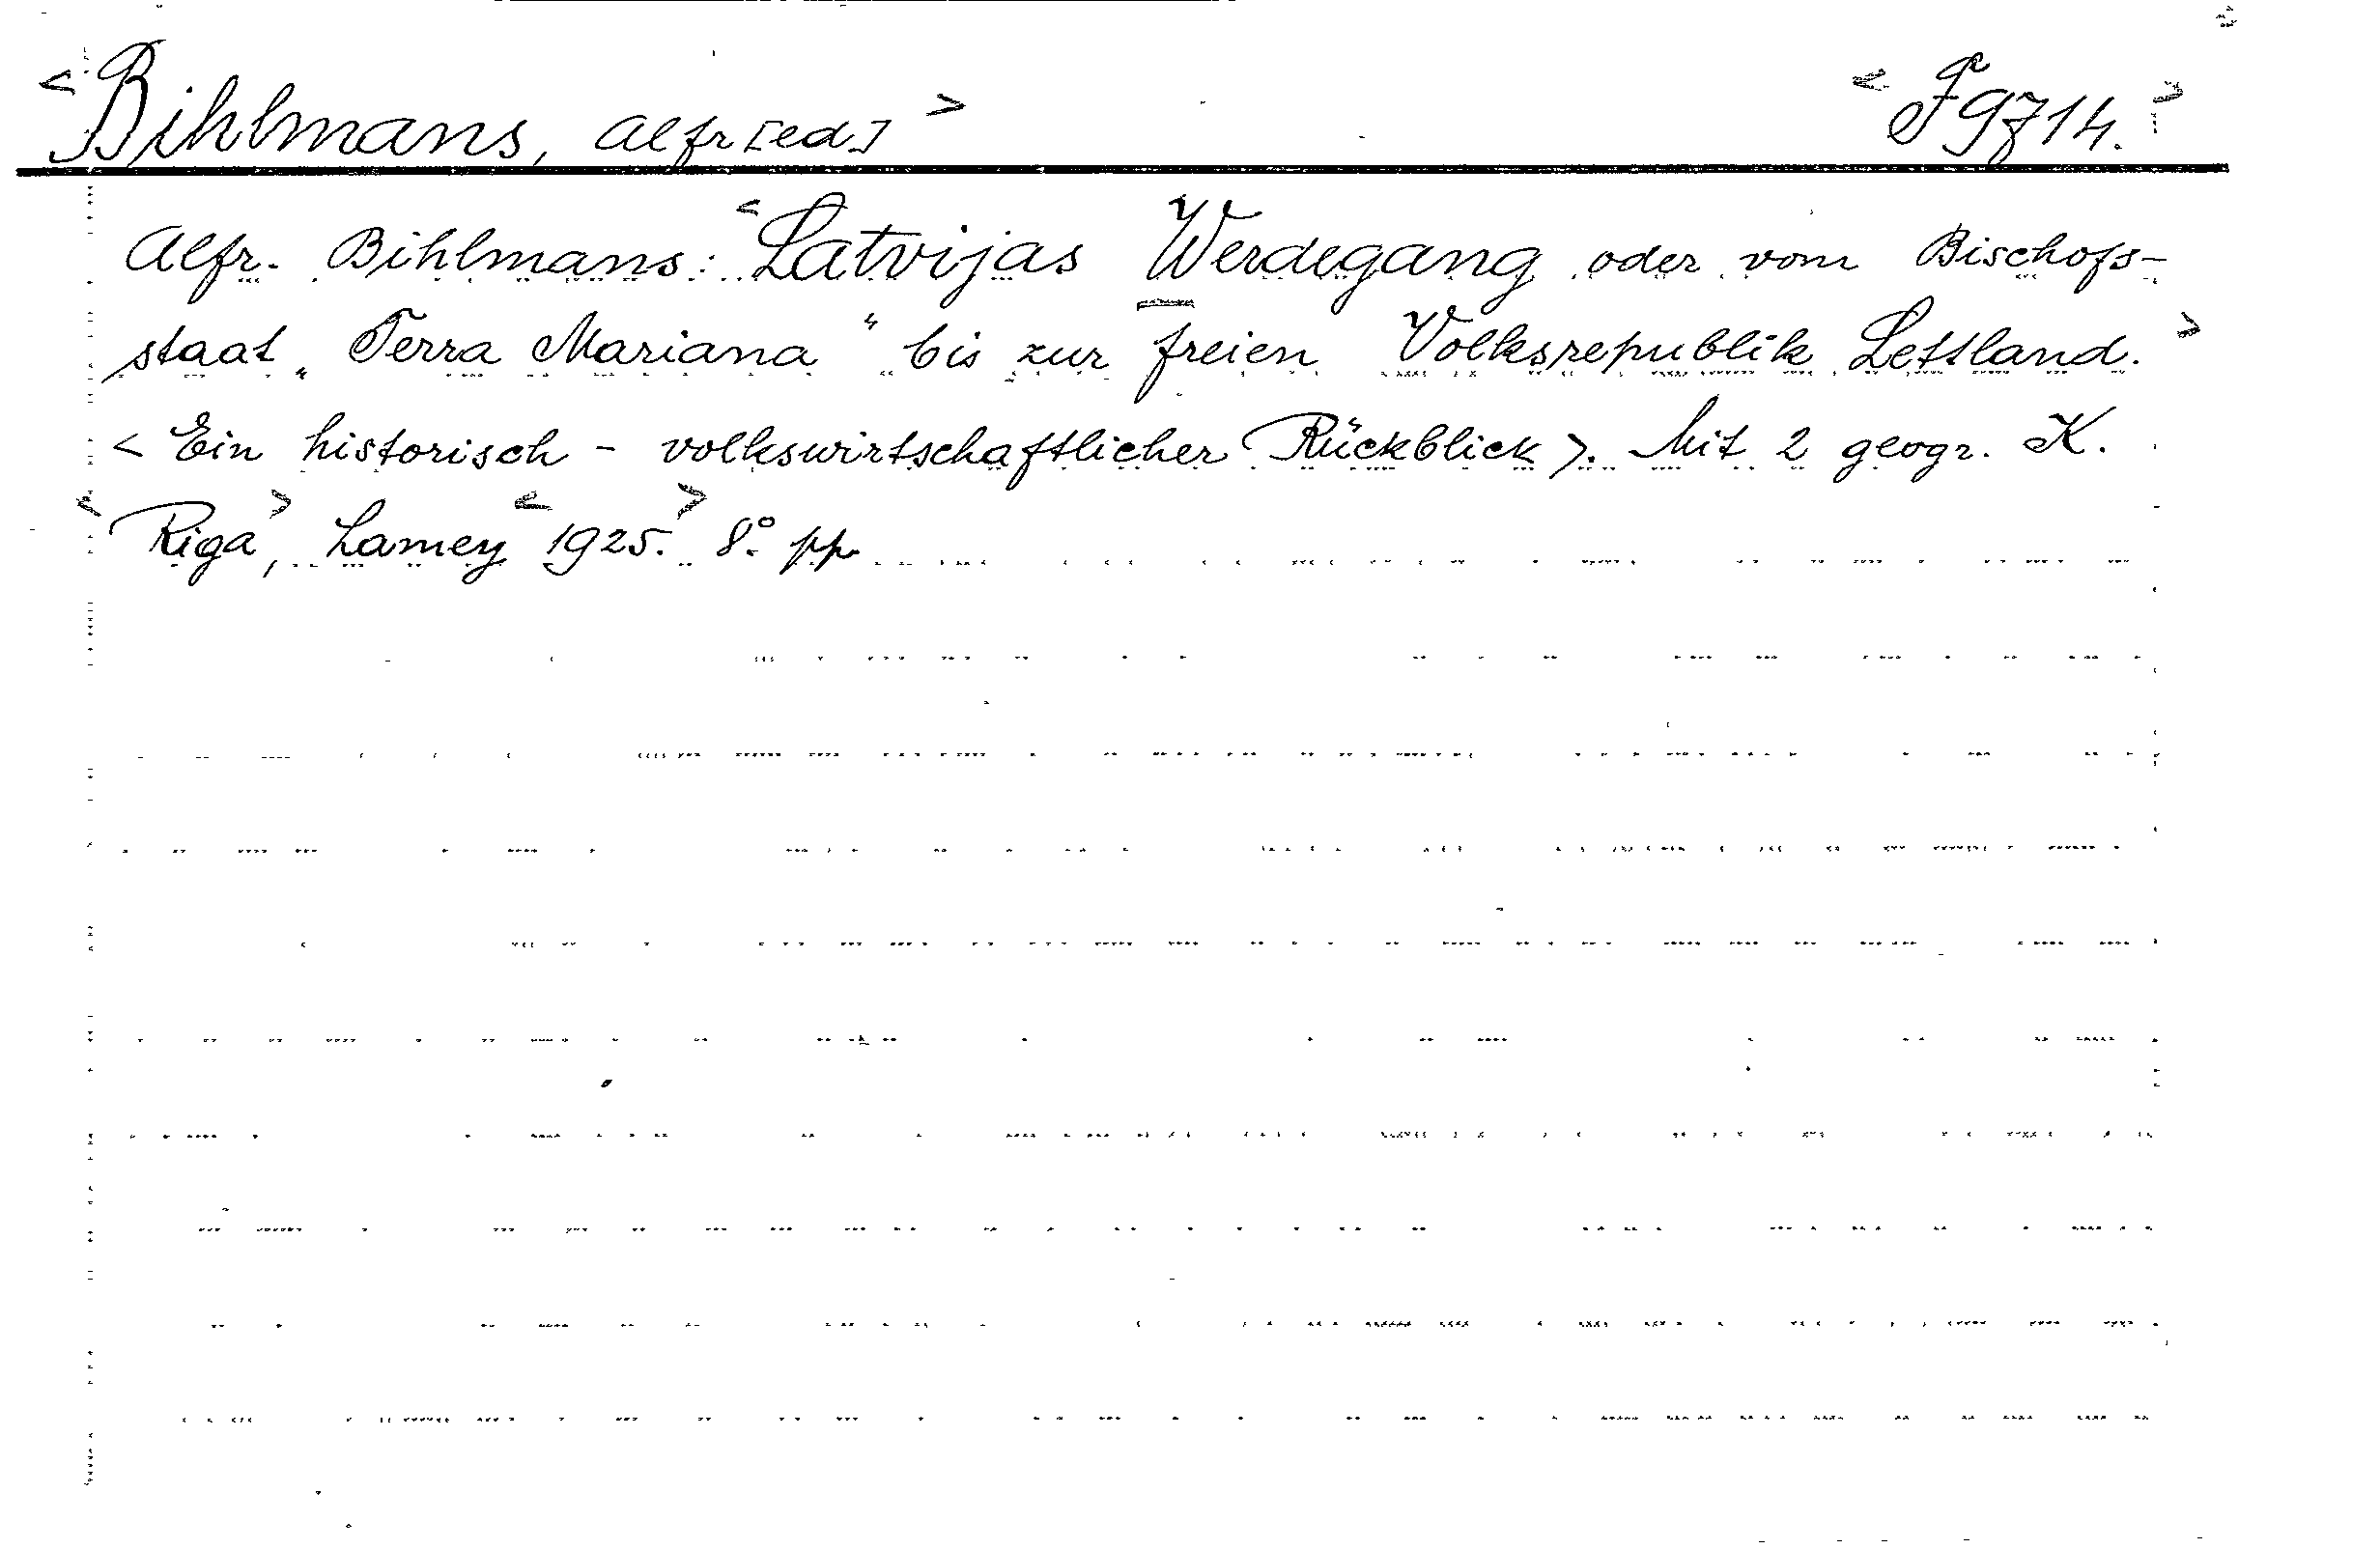 <Bihlmans, Alfr[ed]> <F9714.>
Alfr. Bihlmans: <Latvijas Werdegang oder vom Bischofs-
staat „Terra Mariana“ bis zur freien Volksrepublik Lettland.>
<Ein historisch - volkswirtschaftlicher Rückblick>. Mit 2 geogr. K.
<Riga>, Lamey <1925.> 8°. pp.